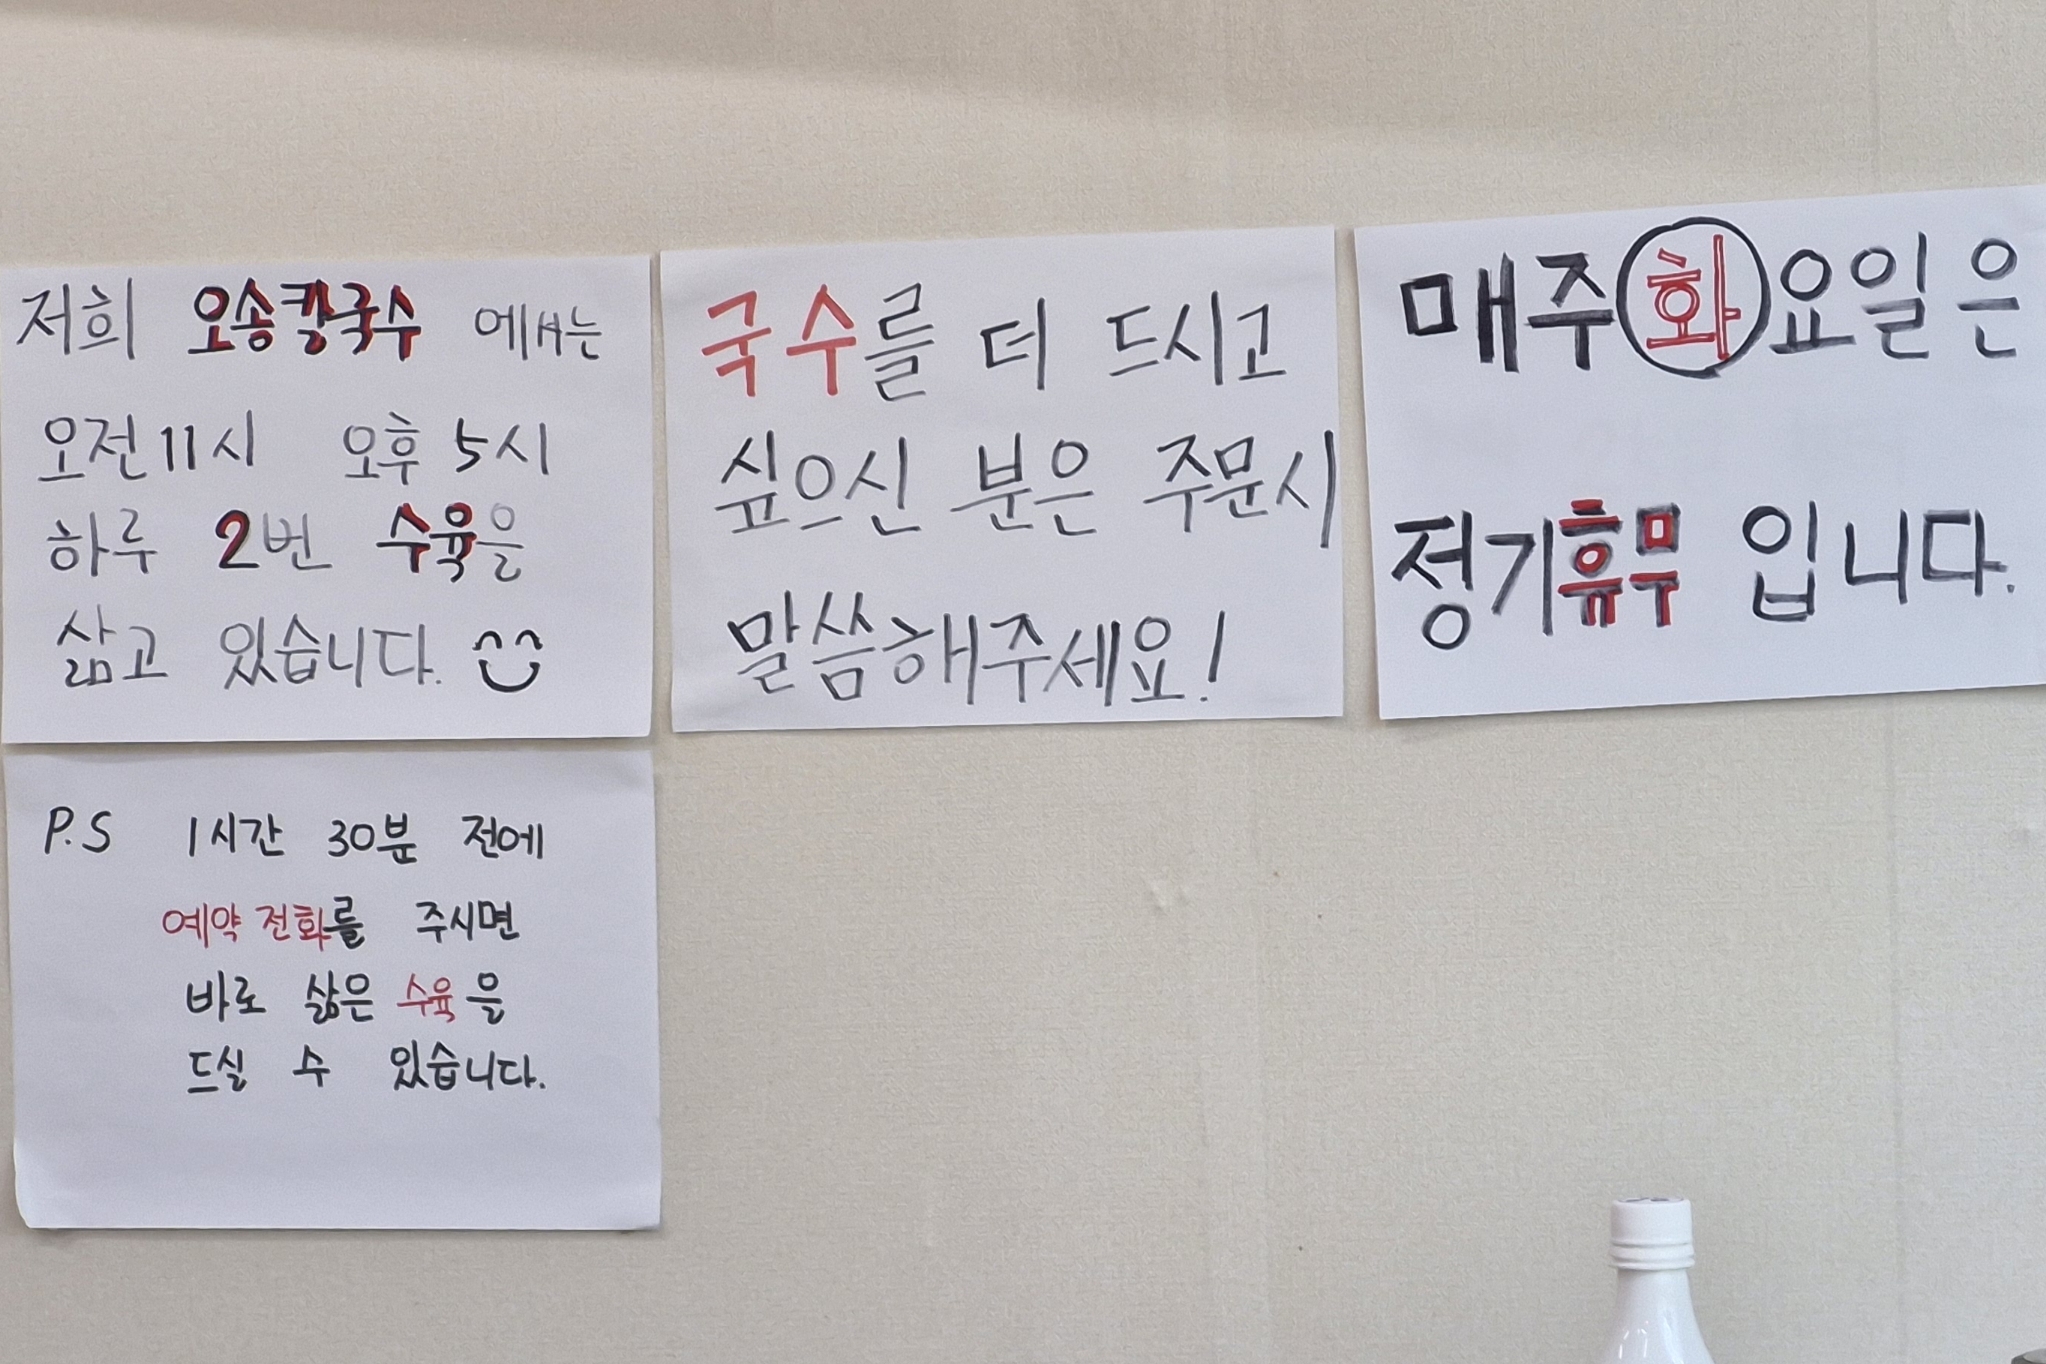 저희 오송칼국수 에서는
오전 11시 오후 5시
하루 2번 수육을
삶고 있습니다.
P.S 1시간 30분 전에
예약 전화를 주시면
바로 삶은 수육을
드실 수 있습니다.
국수를 더 드시고
싶으신 분은 주문시
말씀해주세요!
매주 화요일은
정기휴무 입니다.